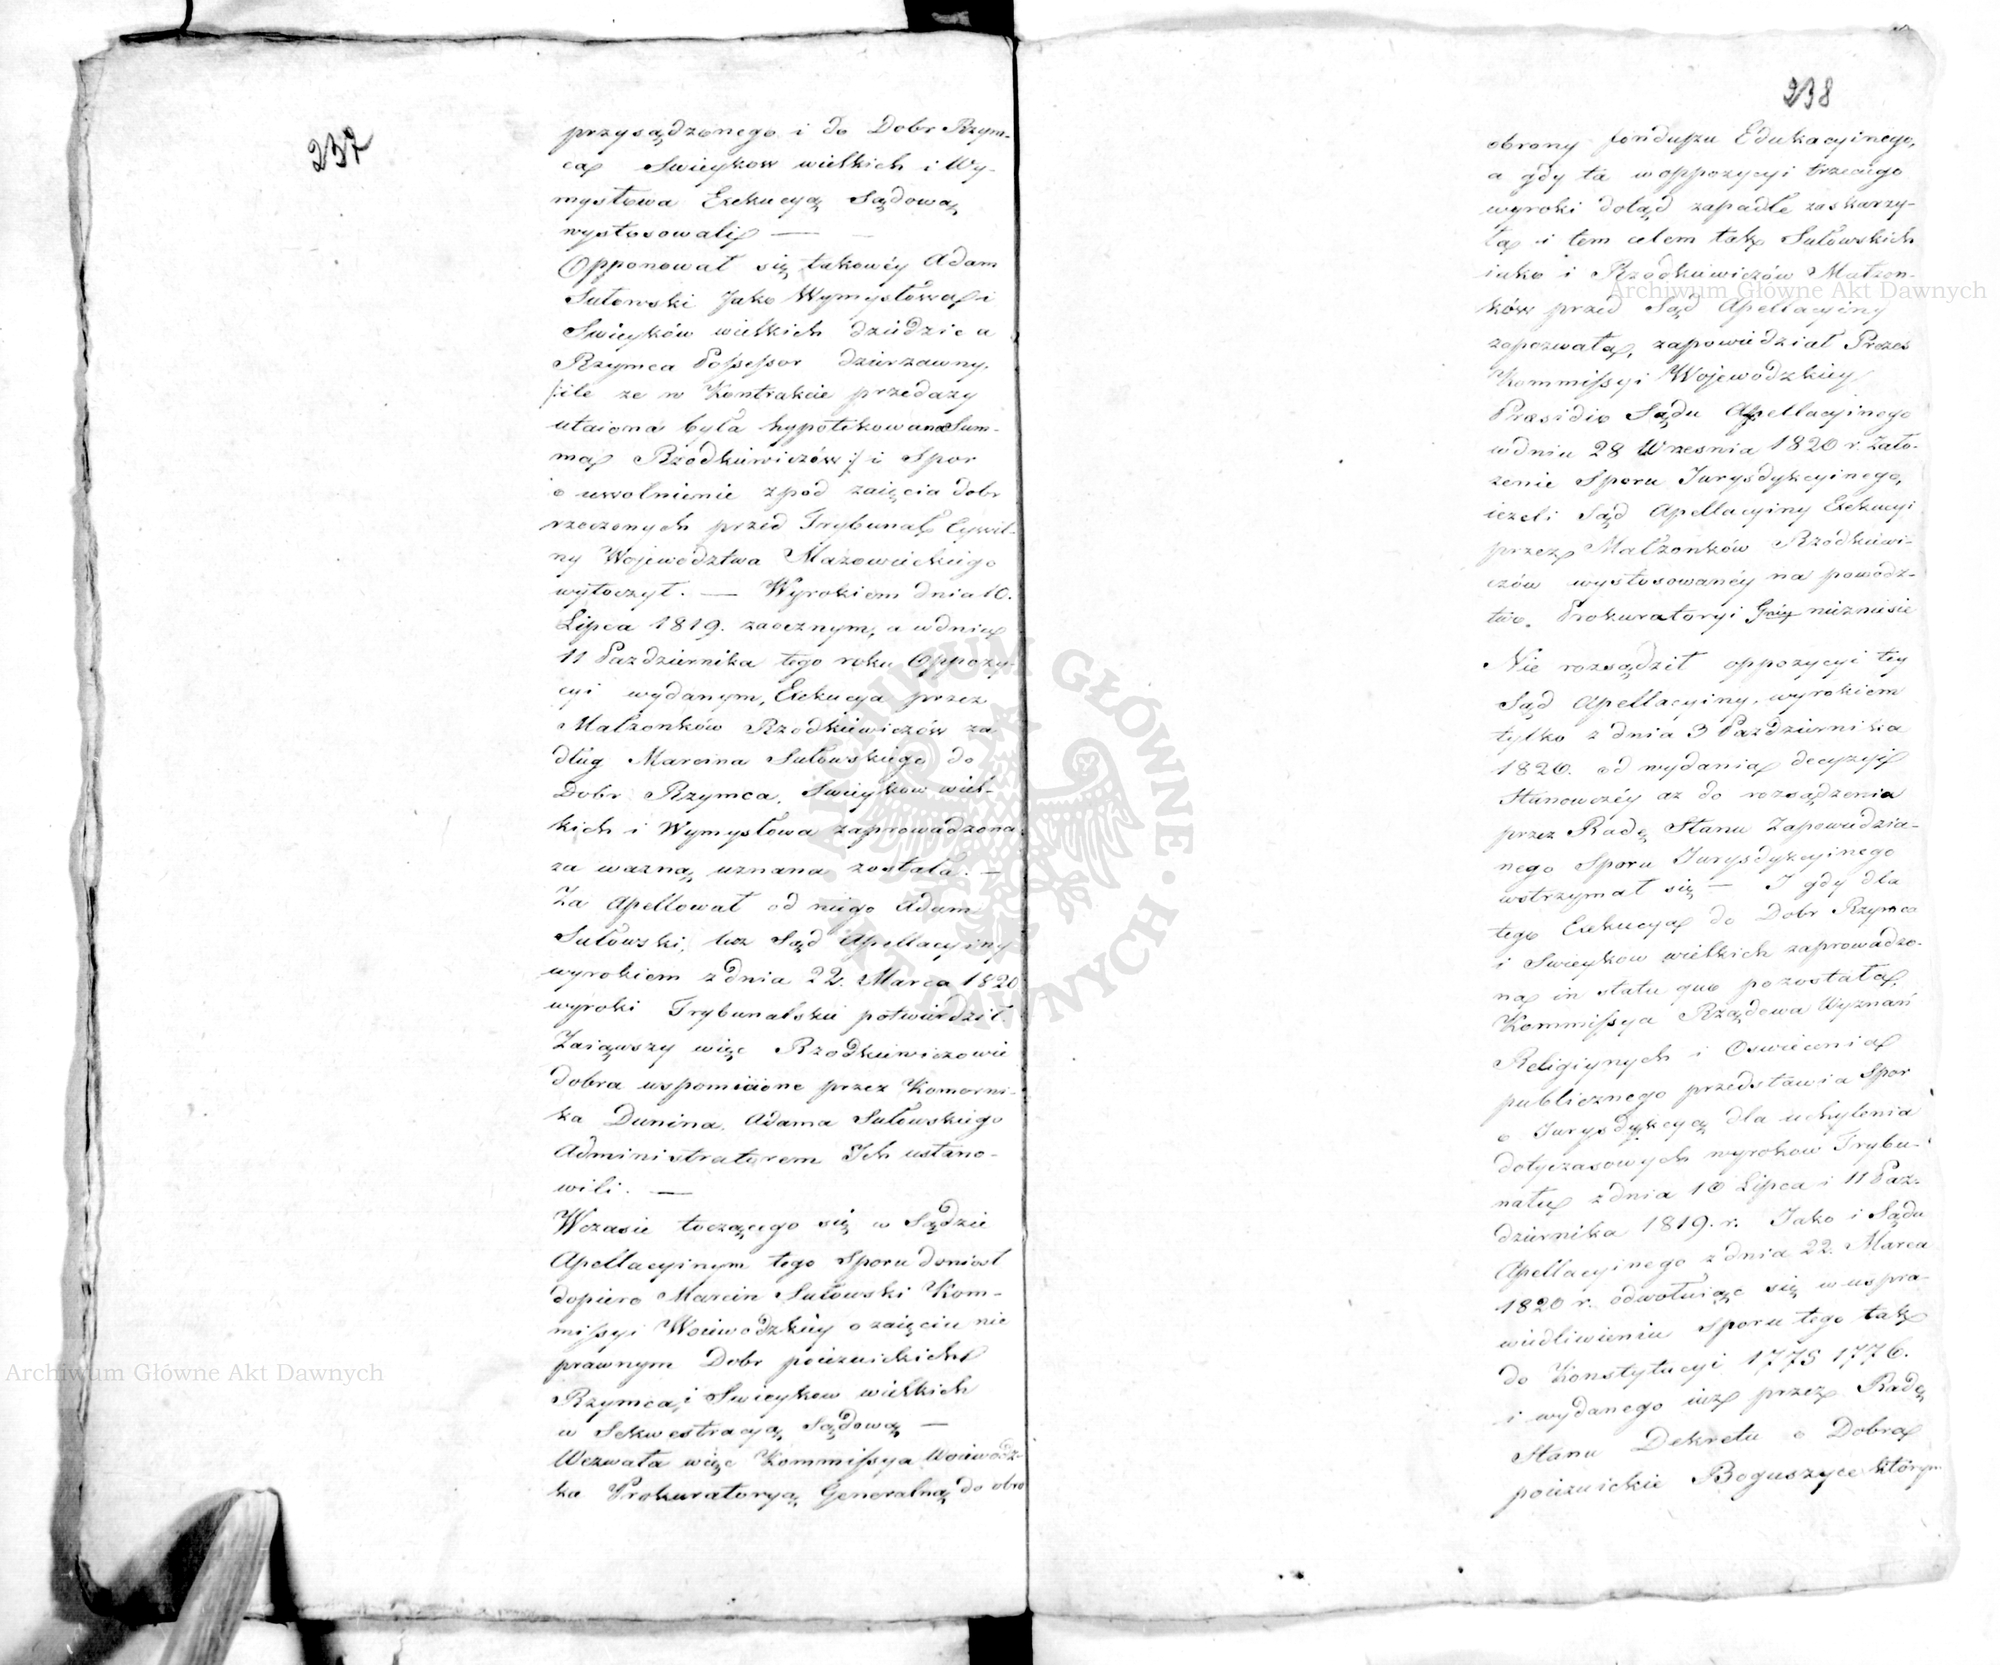 237
przysądzonego i do Dobr Rzym-
ca Swieykow wielkich i Wy-
mysłowa Exekucyą Sądową
wystosowali —
Opponował się takowéy Adam
Sułowski Jako Wymysłowa i
Swieyków wielkich dziedzic a
Rzymca Possessor dzierzawny,
/:ile ze w Kontrakcie przedazy
utaiona była hypotekowana Sum-
ma Rzodkiewiczów:/ i Spor
o uwolnienie zpod zaięcia dobr
rzeczonych przed Trybunał Cywil-
ny Województwa Mazowieckiego
wytoczył. — Wyrokiem dnia 10.
Lipca 1819. zaocznym, a w dniu
11 Pazdziernika tego roku Oppozy-
cyi wydanym, Exekucya przez
Małzonków Rzodkiewiczów za
dług Marcina Sułowskiego do
Dobr Rzymca, Swieykow wiel-
kich i Wymysłowa zaprowadzona
za wazną uznana została. —
Za Apellował od niego Adam
Sułowski, lecz Sąd Apellacyiny
wyrokiem z dnia 22. Marca 1820
wyroki Trybunalskie potwierdził.
Zaiąwszy więc Rzodkiewiczowie
dobra wspomnione przez Komorni-
ka Dunina, Adama Sułowskiego
Administratorem Ich ustano-
wili. —
Wczasie toczącego się w Sądzie
Apellacyinym tego Sporu doniosł
dopiero Marcin Sułowski Kom-
missyi Woiewodzkiéy o zaięciu nie
prawnym Dobr poiezuickich
Rzymca i Swieykow wielkich
w Sekwestracyą Sądową —
Wezwała więc Kommissya Woiewódz-
ka Prokuratoryą Generalną do obro
238
obrony funduszu Edukacyinego,
a gdy ta w oppozycyi trzeciego
wyroki dotąd zapadłe zaskarzy-
ła i tem celem tak Sułowskich
iako i Rzodkiewiczów Małzon-
ków przed Sąd Apellacyiny
zapozwała, zapowiedział Prezes
Kommissyi Wojewodzkiéy
Præsidio Sądu Apellacyinego
w dniu 28 Wrzesnia 1820 r. Zało-
zenie Sporu Jurysdykcyinego,
iezeli Sąd Apellacyiny Exekucyi
przez Małzonków Rzódkiewi-
czów wystosowanéy na powódz-
two Prokuratoryi Gnéy nieznie­sie
Nie rozsądził oppozycyi tey
Sąd Apellacyiny, wyrokiem
tylko z dnia 3 Pazdziernika
1820. od wydania decyzyi
Stanowczéy az do rozsądzenia
przez Radę Stanu Zapowiedzia-
nego Sporu Jurysdykcyinego
wstrzymał się — I gdy dla
tego Exekucya do Dobr Rzymca
i Swieykow wielkich zaprowadzo-
na in statu quo pozostała,
Kommissya Rządowa Wyznań
Religiynych i Oswiecenia
publicznego przedstawia Spor
o Jurysdykcyą dla uchylenia
dotyczasowych wyrokow Trybu-
nału z dnia 10 Lipca i 11 Paz-
dziernika 1819. r. Jako i Sądu
Apellacyinego z dnia 22. Marca
1820 r. odwołuiąc się w uspra-
wiedliwieniu Sporu tego tak
do Konstytucyi 1775 1776.
i wydanego iuz przez Radę
Stanu Dekretu o Dobra
poiezuickie Boguszyce którym
Archiwum Główne Akt Dawnych
Archiwum Główne Akt Dawnych
ARCHIWUM GŁÓWNE AKT DAWNYCH